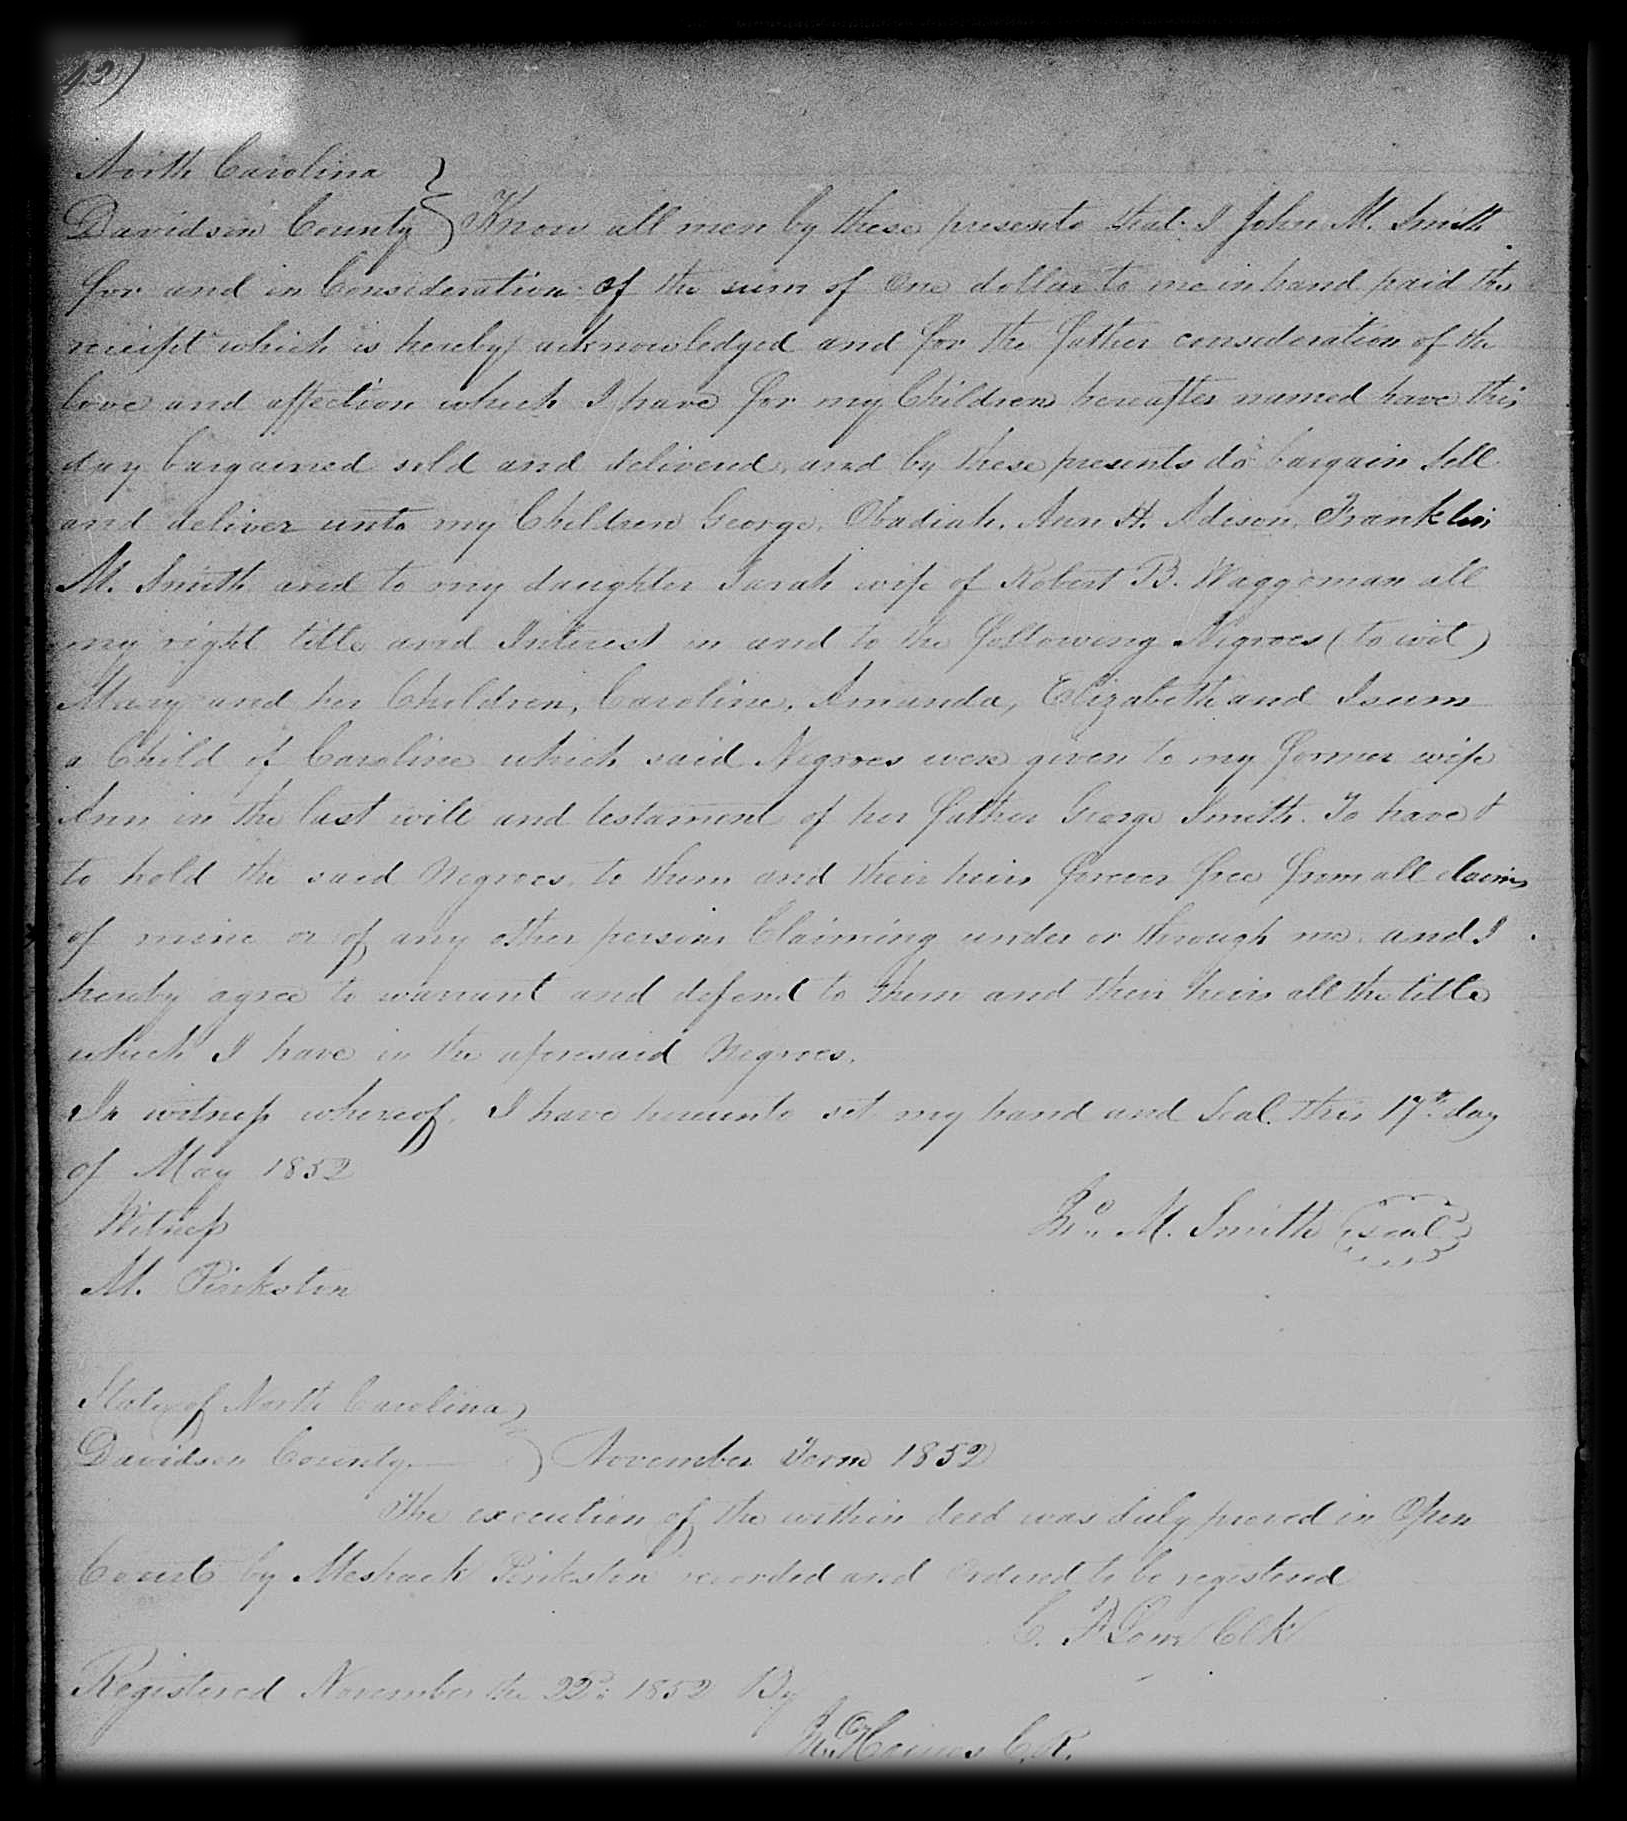 42)
North Carolina
Davidson County } Know all men by these presents that I John M. Smith
for and in Consideration of the sum of One dollar to me in hand paid the
receipt which is hereby acknowledged and for the futher consideration of the
love and affection which I have for my Children hereafter named have this
day bargained sold and delivered, and by these presents do bargain sell
and deliver unto my Children George, Obadiah, Ann H. Adison, Franklin
M. Smith and to my daughter Sarah wife of Robert B. Waggoman all
my right title and Interest in and to the following Negroes (to wit)
Mary and her Children, Caroline, Amunda, Elizabeth and Isum
a Child of Caroline which said Negroes were given to my former wife
Ann in the last will and testament of her father George Smith. To have &
to hold the said Negroes, to them and their heirs forever free from all claims
of mine or of any other person Claiming under or through me. and I
hereby agree to warrant and defend to them and their heirs all the title
which I have in the aforesaid Negroes.
In witness whereof, I have hereunto set my hand and Seal. this 17th day
of May 1852
Witness Jno. M. Smith (seal)
M. Pinkston
State of North Carolina
Davidson County } November Term 1852
The execution of the within deed was duly proved in Open
Court by Meshack Pinkston recorded and Ordered to be registered
C. F Low Clk
Registered November the 22d: 1852 By
Haines C.R.